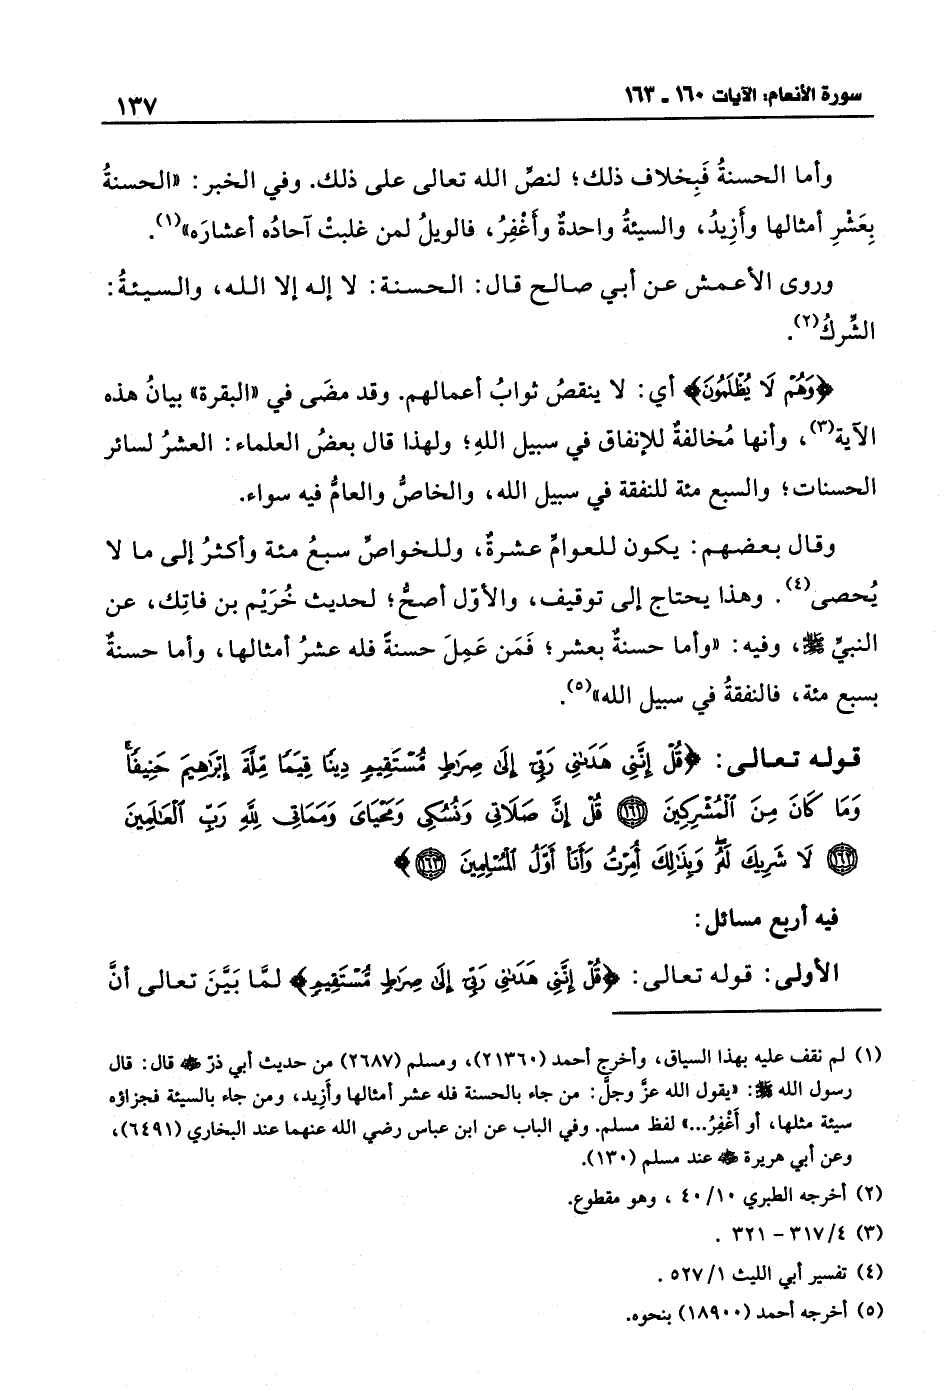 سورة الأنعام: الآيات ١٦٠ ـ ١٦٣
١٣٧
وأما الحسنةُ فَبِخلاف ذلك؛ لنصِّ الله تعالى على ذلك. وفي الخبر: «الحسنةُ
بِعَشْرِ أمثالها وأَزِيدُ، والسيئةُ واحدةٌ وأَغْفِرُ، فالويلُ لمن غلبتْ آحادُه أعشارَه»(١).
وروى الأعمش عن أبي صالح قال: الحسنة: لا إله إلا الله، والسيئةُ:
الشِّركُ(٢).
﴿وَهُمْ لَا يُظْلَمُونَ﴾ أي: لا ينقصُ ثوابُ أعمالهم. وقد مضَى في «البقرة» بيانُ هذه
الآية(٣)، وأنها مُخالفةٌ للإنفاق في سبيل اللهِ؛ ولهذا قال بعضُ العلماء: العشرُ لسائر
الحسنات؛ والسبع مئة للنفقة في سبيل الله، والخاصُّ والعامُّ فيه سواء.
وقال بعضهم: يكون للعوامِّ عشرةٌ، وللخواصِّ سبعُ مئة وأكثرُ إلى ما لا
يُحصى(٤). وهذا يحتاج إلى توقيف، والأوّل أصحُّ؛ لحديث خُرَيْم بن فاتِك، عن
النبيِّ ﷺ، وفيه: «وأما حسنةٌ بعشر؛ فَمَن عَمِلَ حسنةً فله عشرُ أمثالها، وأما حسنةٌ
بسبع مئة، فالنفقةُ في سبيل الله»(٥).
قوله تعالى: ﴿قُلْ إِنَّنِي هَدَىٰنِي رَبِّيٓ إِلَىٰ صِرَٰطٍ مُّسْتَقِيمٍ دِينًا قِيَمًا مِّلَّةَ إِبْرَٰهِيمَ حَنِيفًاۚ
وَمَا كَانَ مِنَ ٱلْمُشْرِكِينَ ١٦١ قُلْ إِنَّ صَلَاتِي وَنُسُكِي وَمَحْيَايَ وَمَمَاتِي لِلَّهِ رَبِّ ٱلْعَٰلَمِينَ
١٦٢ لَا شَرِيكَ لَهُۥۖ وَبِذَٰلِكَ أُمِرْتُ وَأَنَا۠ أَوَّلُ ٱلْمُسْلِمِينَ ١٦٣﴾
فيه أربع مسائل:
الأولى: قوله تعالى: ﴿قُلْ إِنَّنِي هَدَىٰنِي رَبِّيٓ إِلَىٰ صِرَٰطٍ مُّسْتَقِيمٍ﴾ لمَّا بَيَّنَ تعالى أنَّ
(١) لم نقف عليه بهذا السياق، وأخرج أحمد (٢١٣٦٠)، ومسلم (٢٦٨٧) من حديث أبي ذرّ ﷺ قال: قال
رسول الله ﷺ: «يقول الله عزَّ وجلَّ: من جاء بالحسنة فله عشر أمثالها وأَزيد، ومن جاء بالسيئة فجزاؤه
سيئة مثلها، أو أَغْفِرُ...» لفظ مسلم. وفي الباب عن ابن عباس رضي الله عنهما عند البخاري (٦٤٩١)،
وعن أبي هريرة ﷺ عند مسلم (١٣٠).
(٢) أخرجه الطبري ١٠/ ٤٠ ، وهو مقطوع.
(٣) ٤/ ٣١٧ - ٣٢١ .
(٤) تفسير أبي الليث ١/ ٥٢٧ .
(٥) أخرجه أحمد (١٨٩٠٠) بنحوه.